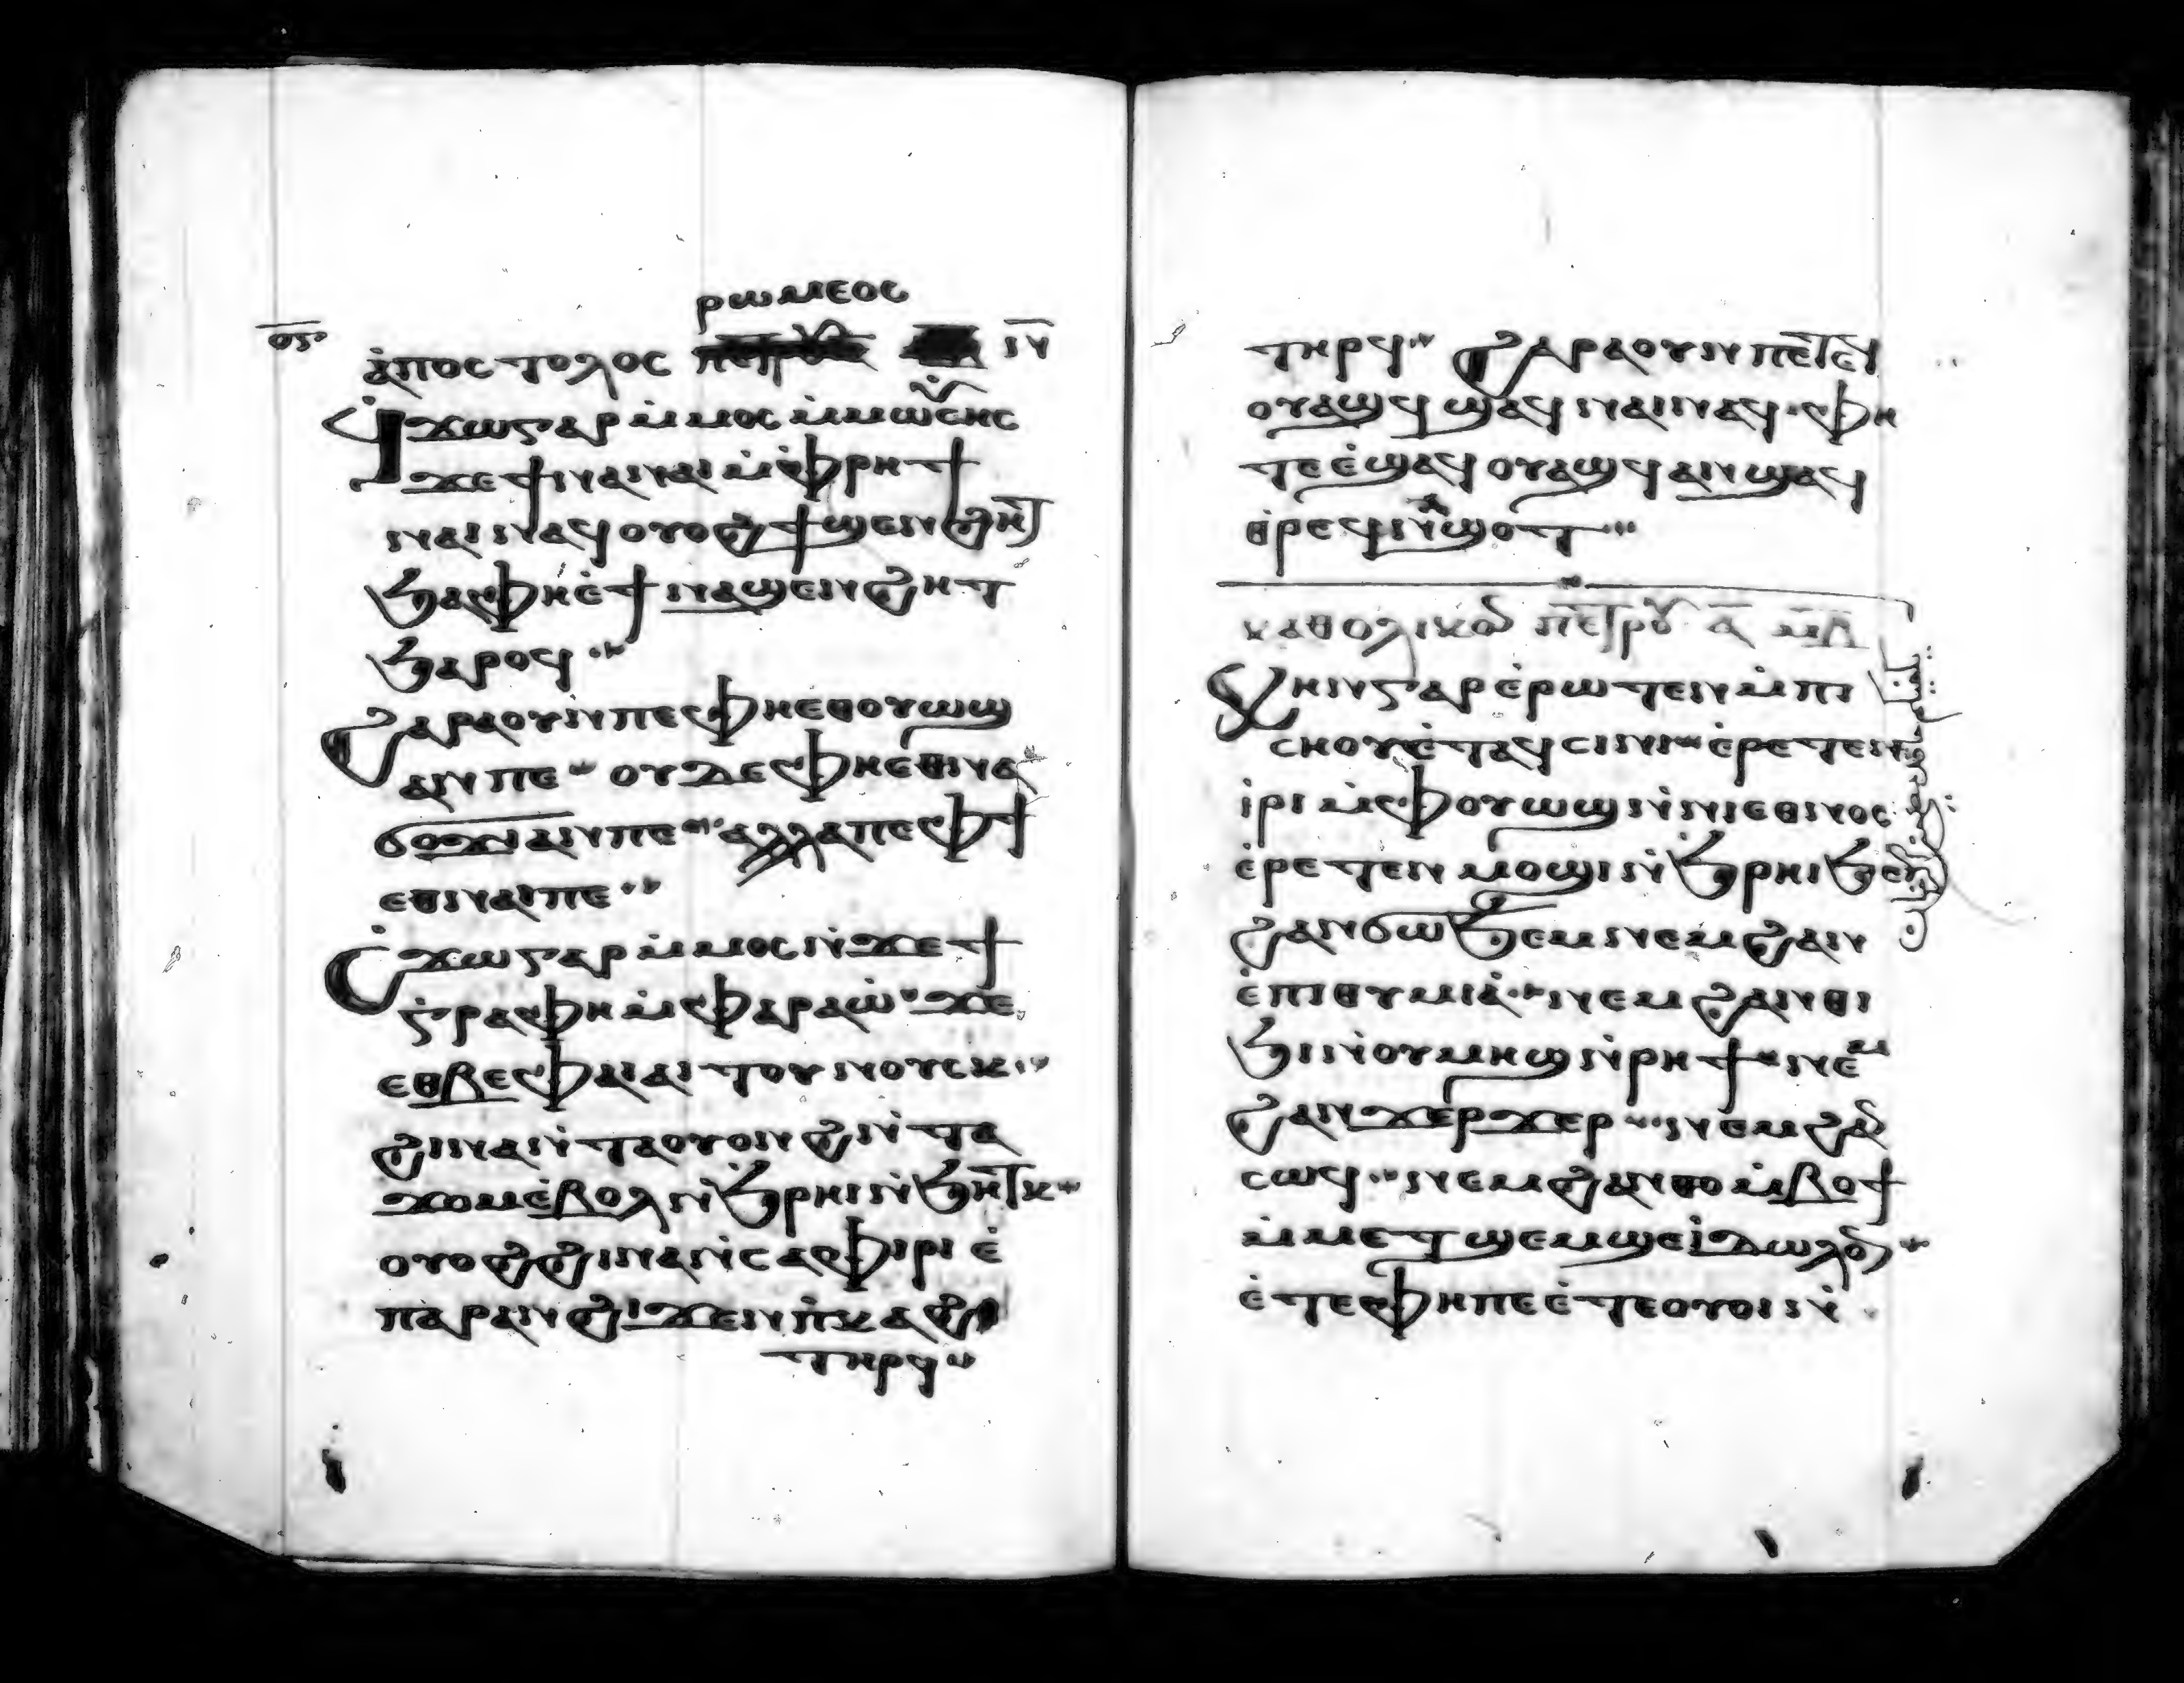 ⲣⲱⲙⲉⲟⲥ
ⲟⲋ
ⲁ̀ⲡⲟⲥⲧⲟⲗⲟⲥ ⲓⲛ̅
ϥ̀ϫⲱⲅⲁⲣ ⲙ̀ⲙⲟⲥ ⲙ̀ⲙⲱⲩ̀ⲥⲏⲥ
ϫⲉϯⲛⲁⲛⲁⲓ ⲙ̀ⲫⲣⲏϯ
ⲛⲁⲓⲛⲁϥ ⲟⲩⲟϩϯϣⲉⲛϩⲏⲧ
ϧⲁⲫⲏⲉ̀ϯⲛⲁϣⲉⲛϩⲏⲧ
ϧⲁⲣⲟϥ
ϩⲁⲣⲁⲟⲩⲛⲡⲉⲫⲏⲉⲑⲟⲩⲱϣ
ⲁⲛⲡⲉ ⲟⲩⲇⲉⲫⲏⲉⲑⲛⲁ
ϭⲟϫⲓ ⲁⲛⲡⲉ ⲁⲗⲗⲁⲡⲉⲫϯ
ⲉⲑⲛⲁⲓⲡⲉ
ⲥ̀ϫⲱⲅⲁⲣ ⲙ̀ⲙⲟⲥⲛ̀ϫⲉϯ
ⲅ̀ⲣⲁⲫⲏ ⲙ̀ⲫⲁⲣⲁⲱ̀ ϫⲉ
ⲉⲑⲃⲉⲫⲁⲓⲁⲓⲧⲟⲩⲛⲟⲩⲥⲕ
ϩⲓⲛⲁⲛ̀ⲧⲁⲟⲩⲟⲛϩⲛ̀ⲧⲁ
ϫⲟⲙⲉ̀ⲃⲟⲗⲛ̀ϧ̀ⲣⲏⲓⲛ̀ϧⲏⲧⲕ
ⲟⲩⲟϩϩⲓⲛⲁⲛ̀ⲥⲁⲫⲓⲣⲓ ⲉ̀
ⲡⲁⲣⲁⲛϩⲓϫⲉⲛⲡ̀ⲕⲁϩⲓ
ⲧⲏⲣϥ
ⲧⲏⲣϥ ϩⲁⲣⲁⲟⲩⲛⲡⲉⲧⲉϥ
ⲟⲩⲁϣϥ ϣⲁϥⲛⲁⲓⲛⲁϥ ⲫⲏ
ⲧⲉⲉ̀ϣⲁϥⲟⲩⲁϣϥⲁⲛϣⲁϥ
ⲑⲣⲉϥⲛ̀ϣⲟⲧ
ⲕⲁⲑⲟⲗⲓⲕⲟⲛ ⲡⲉⲧⲣⲟⲩ ⲁ̅
ϥⲏⲛⲅⲁⲣⲉ̀ⲣⲱⲧⲉⲛⲙ̀ⲡⲓ
ⲥⲏⲟⲩⲉ̀ⲧⲁϥⲥⲓⲛⲓ ⲉ̀ⲣⲉⲧⲉⲛ
ⲓ̀ⲣⲓ ⲙ̀ⲫⲟⲩⲱϣⲛ̀ⲛⲓⲉⲑⲛⲟⲥ
ⲉ̀ⲣⲉⲧⲉⲛ ⲙⲟϣⲓⲛ̀ϧ̀ⲣⲏⲓϧⲉⲛ
ϩⲁⲛϭⲱϧⲉⲙⲛⲉⲙϩⲁⲛ
ⲉ̀ⲡⲓⲑⲩⲙⲓⲁ̀ ⲛⲉⲙϩⲁⲛⲑⲓ
ϧⲓⲛ̀ⲟⲩⲙⲏϣⲛ̀ⲣⲏϯ ⲛⲉⲙ
ϩⲁⲛϫⲉⲣϫⲉⲣ ⲛⲉⲙϩⲁⲛ
ⲥⲱϥ ⲛⲉⲙϩⲁⲛⲑⲟ ⲙ̀ⲃⲟϯ
ⲙ̀ⲙⲉⲧϣⲉⲙϣⲉⲓ̀ⲇⲱⲗⲟⲛ
ⲉ̀ⲧⲉⲫⲏⲡⲉⲉ̀ⲧⲉⲟⲩⲟⲓⲛ̀